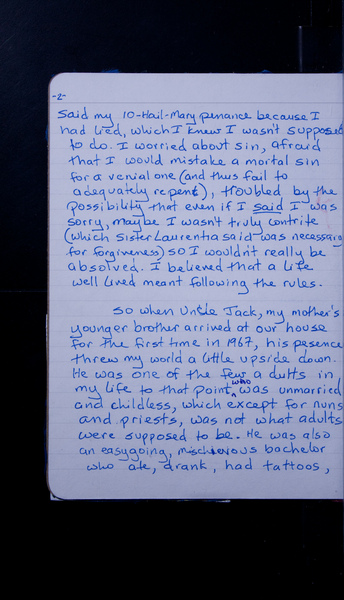 -2-
said my 10-Hail-Mary penance because I
had lied, which I knew I wasn't supposed
to do. I worried about sin, afraid
that I would mistake a mortal sin
for a venial one (and thus fail to
adequately repent), troubled by the
possibility that even if I said I was
sorry, maybe I wasn't truly contrite
(which Sister Laurentia said was necessary
for forgiveness) so I wouldn't really be
absolved. I believed that a life
well lived meant following the rules.
So when Uncle Jack, my mother's
younger brother arrived at our house
for the first time in 1967, his pesence
threw my world a little upside down.
He was one of the few adults in
my life to that point who was unmarried
and childless, which except for nuns
and priests, was not what adults
were supposed to be. He was also
an easygoing, mischievous bachelor
who ate, drank, had tattoos,